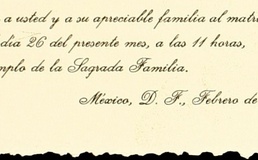 a usted y a su apreciable familia al matr
día 26 del presente mes, a las 11 horas,
mplo de la Sagrada Familia.
México, D. F., Febrero de